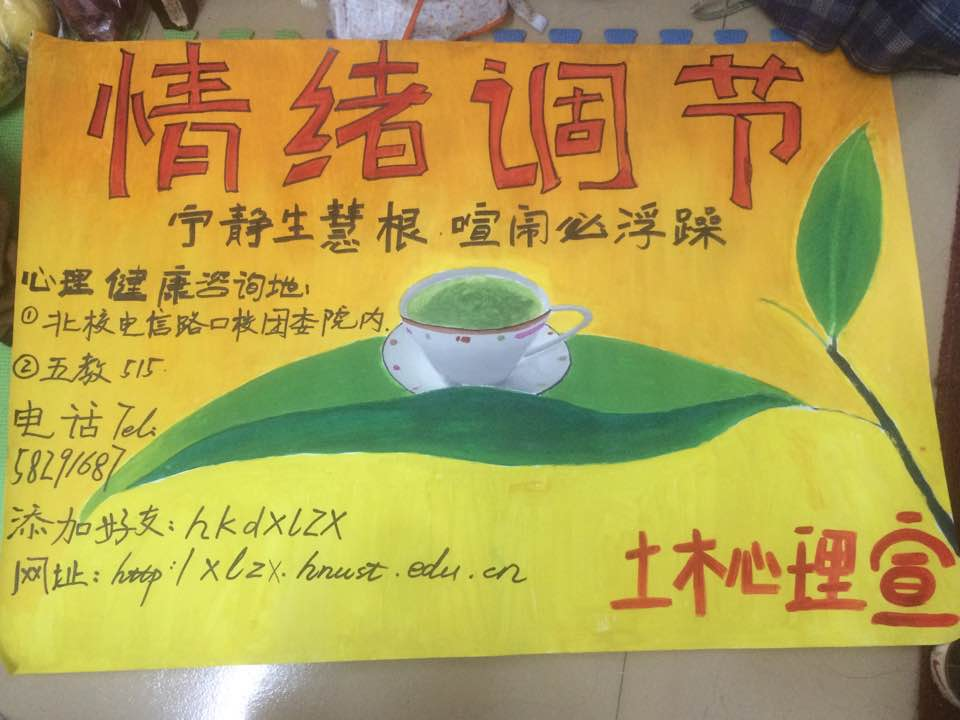 情绪调节
宁静生慧根.喧闹必浮躁
心理健康咨询地:
①北校电信路口校团委院内.
②五教515.
电话Tel:
58291687
添加好友:hkdxlzx
网址:http:/xlzx.hnust.edu.cn
土木心理宣